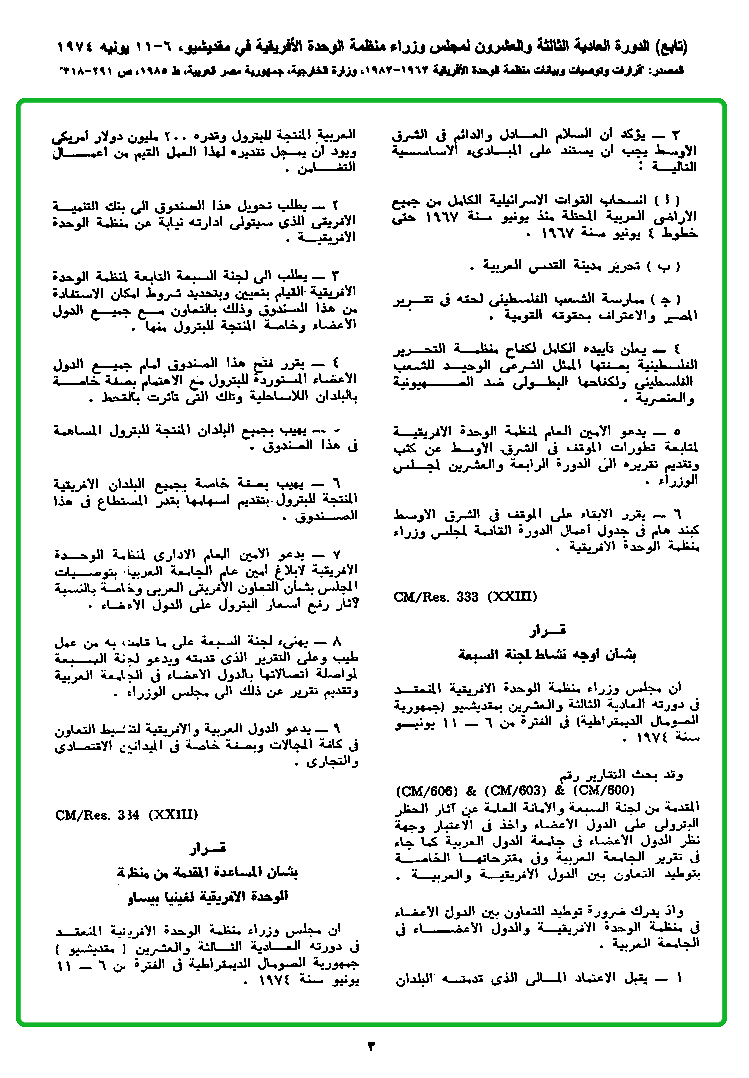 (تابع) الدورة العادية الثالثة والعشرون لمجلس وزراء منظمة الوحدة الأفريقية في مقديشيو، ٦-١١ يونيه ١٩٧٤
المصدر: "قرارات وتوصيات وبيانات منظمة الوحدة الأفريقية ١٩٦٣-١٩٨٣، وزارة الخارجية، جمهورية مصر العربية، ط ١٩٨٥، ص ٢٩١-٣١٨"
٣ — يؤكد أن السلام العادل والدائم فى الشرق
الأوسط يجب أن يستند على المبادىء الأساسية
التالية :
( أ ) انسحاب القوات الاسرائيلية الكامل من جميع
الأراضى العربية المحتلة منذ يونيو سنة ١٩٦٧ حتى
خطوط ٤ يونيو سنة ١٩٦٧ .
( ب ) تحرير مدينة القدس العربية .
( ج ) ممارسة الشعب الفلسطينى لحقه فى تقرير
المصير والاعتراف بحقوقه القومية .
٤ — يعلن تأييده الكامل لكفاح منظمة التحرير
الفلسطينية بصفتها الممثل الشرعى الوحيد للشعب
الفلسطينى ولكفاحها البطولى ضد الصهيونية
والعنصرية .
٥ — يدعو الأمين العام لمنظمة الوحدة الأفريقية
لمتابعة تطورات الموقف فى الشرق الأوسط عن كثب
وتقديم تقريره الى الدورة الرابعة والعشرين لمجلس
الوزراء .
٦ — يقرر الابقاء على الموقف فى الشرق الأوسط
كبند هام فى جدول أعمال الدورة القادمة لمجلس وزراء
منظمة الوحدة الأفريقية .
CM/Res. 333 (XXIII)
قرار
بشأن أوجه نشاط لجنة السبعة
ان مجلس وزراء منظمة الوحدة الأفريقية المنعقد
فى دورته العادية الثالثة والعشرين بمقديشيو (جمهورية
الصومال الديمقراطية) فى الفترة من ٦ — ١١ يونيو
سنة ١٩٧٤ .
وقد بحث التقارير رقم
(CM/606) & (CM/603) & (CM/600)
المقدمة من لجنة السبعة والأمانة العامة عن آثار الحظر
البترولى على الدول الأعضاء وأخذ فى الاعتبار وجهة
نظر الدول الأعضاء فى جامعة الدول العربية كما جاء
فى تقرير الجامعة العربية وفى مقترحاتها الخاصة
بتوطيد التعاون بين الدول الأفريقية والعربية .
واذ يدرك ضرورة توطيد التعاون بين الدول الأعضاء
فى منظمة الوحدة الأفريقية والدول الأعضاء فى
الجامعة العربية .
١ — يقبل الاعتماد المالى الذى قدمته البلدان
العربية المنتجة للبترول وقدره ٢٠٠ مليون دولار أمريكى
ويود أن يسجل تقديره لهذا العمل القيم من أعمال
التضامن .
٢ — يطلب تحويل هذا الصندوق الى بنك التنمية
الأفريقى الذى سيتولى ادارته نيابة عن منظمة الوحدة
الأفريقية .
٣ — يطلب الى لجنة السبعة التابعة لمنظمة الوحدة
الأفريقية القيام بتعيين وبتحديد شروط امكان الاستفادة
من هذا الصندوق وذلك بالتعاون مع جميع الدول
الأعضاء وخاصة المنتجة للبترول منها .
٤ — يقرر فتح هذا الصندوق أمام جميع الدول
الأعضاء المستوردة للبترول مع الاهتمام بصفة خاصة
بالبلدان اللاساحلية وتلك التى تأثرت بالقحط .
— يهيب بجميع البلدان المنتجة للبترول المساهمة
فى هذا الصندوق .
٦ — يهيب بصفة خاصة بجميع البلدان الأفريقية
المنتجة للبترول بتقديم اسهامها بقدر المستطاع فى هذا
الصندوق .
٧ — يدعو الأمين العام الادارى لمنظمة الوحدة
الأفريقية لابلاغ أمين عام الجامعة العربية بتوصيات
المجلس بشأن التعاون الأفريقى العربى وخاصة بالنسبة
لآثار رفع أسعار البترول على الدول الأعضاء .
٨ — يهنىء لجنة السبعة على ما قامت به من عمل
طيب وعلى التقرير الذى قدمته ويدعو لجنة السبعة
لمواصلة اتصالاتها بالدول الأعضاء فى الجامعة العربية
وتقديم تقرير عن ذلك الى مجلس الوزراء .
٩ — يدعو الدول العربية والأفريقية لتنشيط التعاون
فى كافة المجالات وبصفة خاصة فى الميدانين الاقتصادى
والتجارى .
CM/Res. 334 (XXIII)
قرار
بشأن المساعدة المقدمة من منظمة
الوحدة الأفريقية لغينيا بيساو
ان مجلس وزراء منظمة الوحدة الأفريقية المنعقد
فى دورته العادية الثالثة والعشرين ( مقديشيو )
جمهورية الصومال الديمقراطية فى الفترة من ٦ — ١١
يونيو سنة ١٩٧٤ .
٣